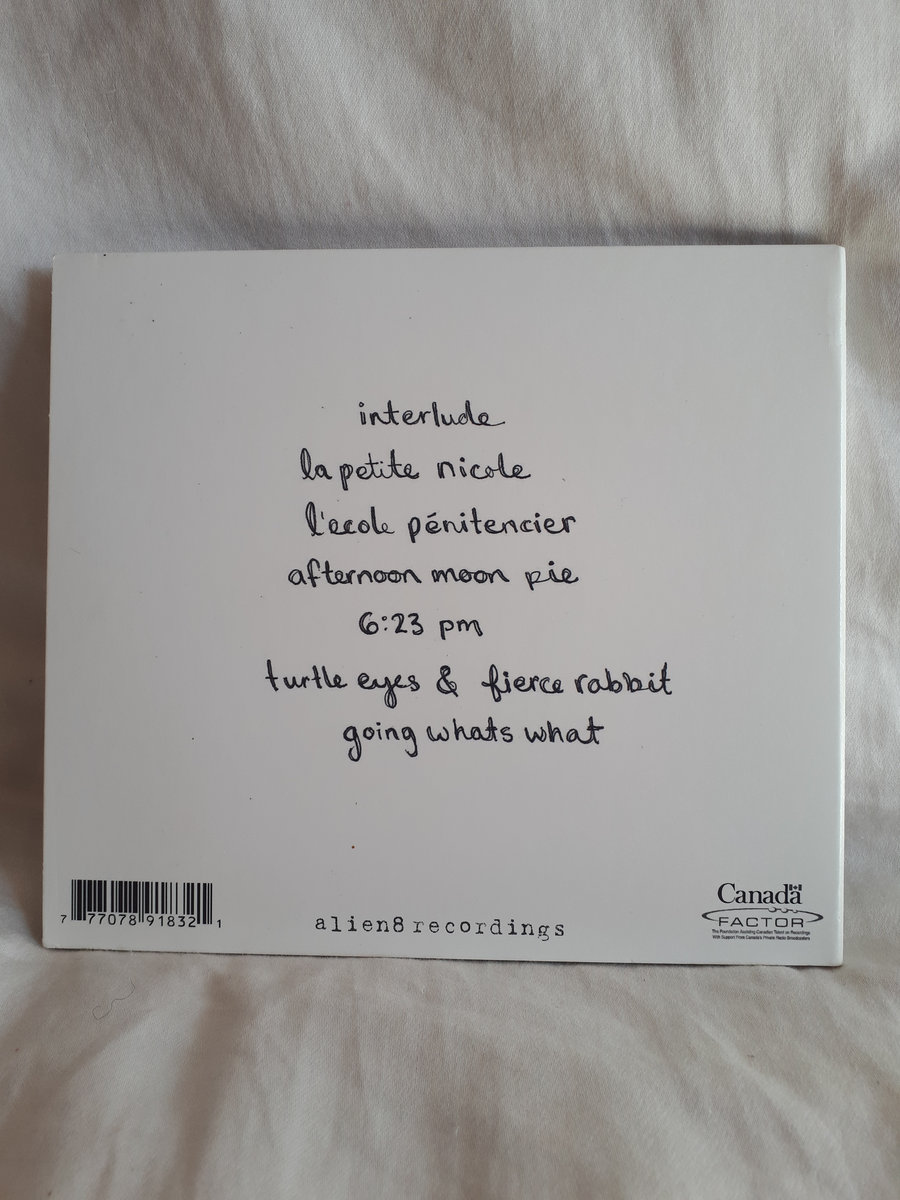 interlude
la petite nicole
l'ecole pénitencier
afternoon moon pie
6:23 pm
turtle eyes & fierce rabbit
going whats what
7 77078 91832 1
alien8 recordings
Canada
FACTOR
The Foundation Assisting Canadian Talent on Recordings
With Support From Canada's Private Radio Broadcasters